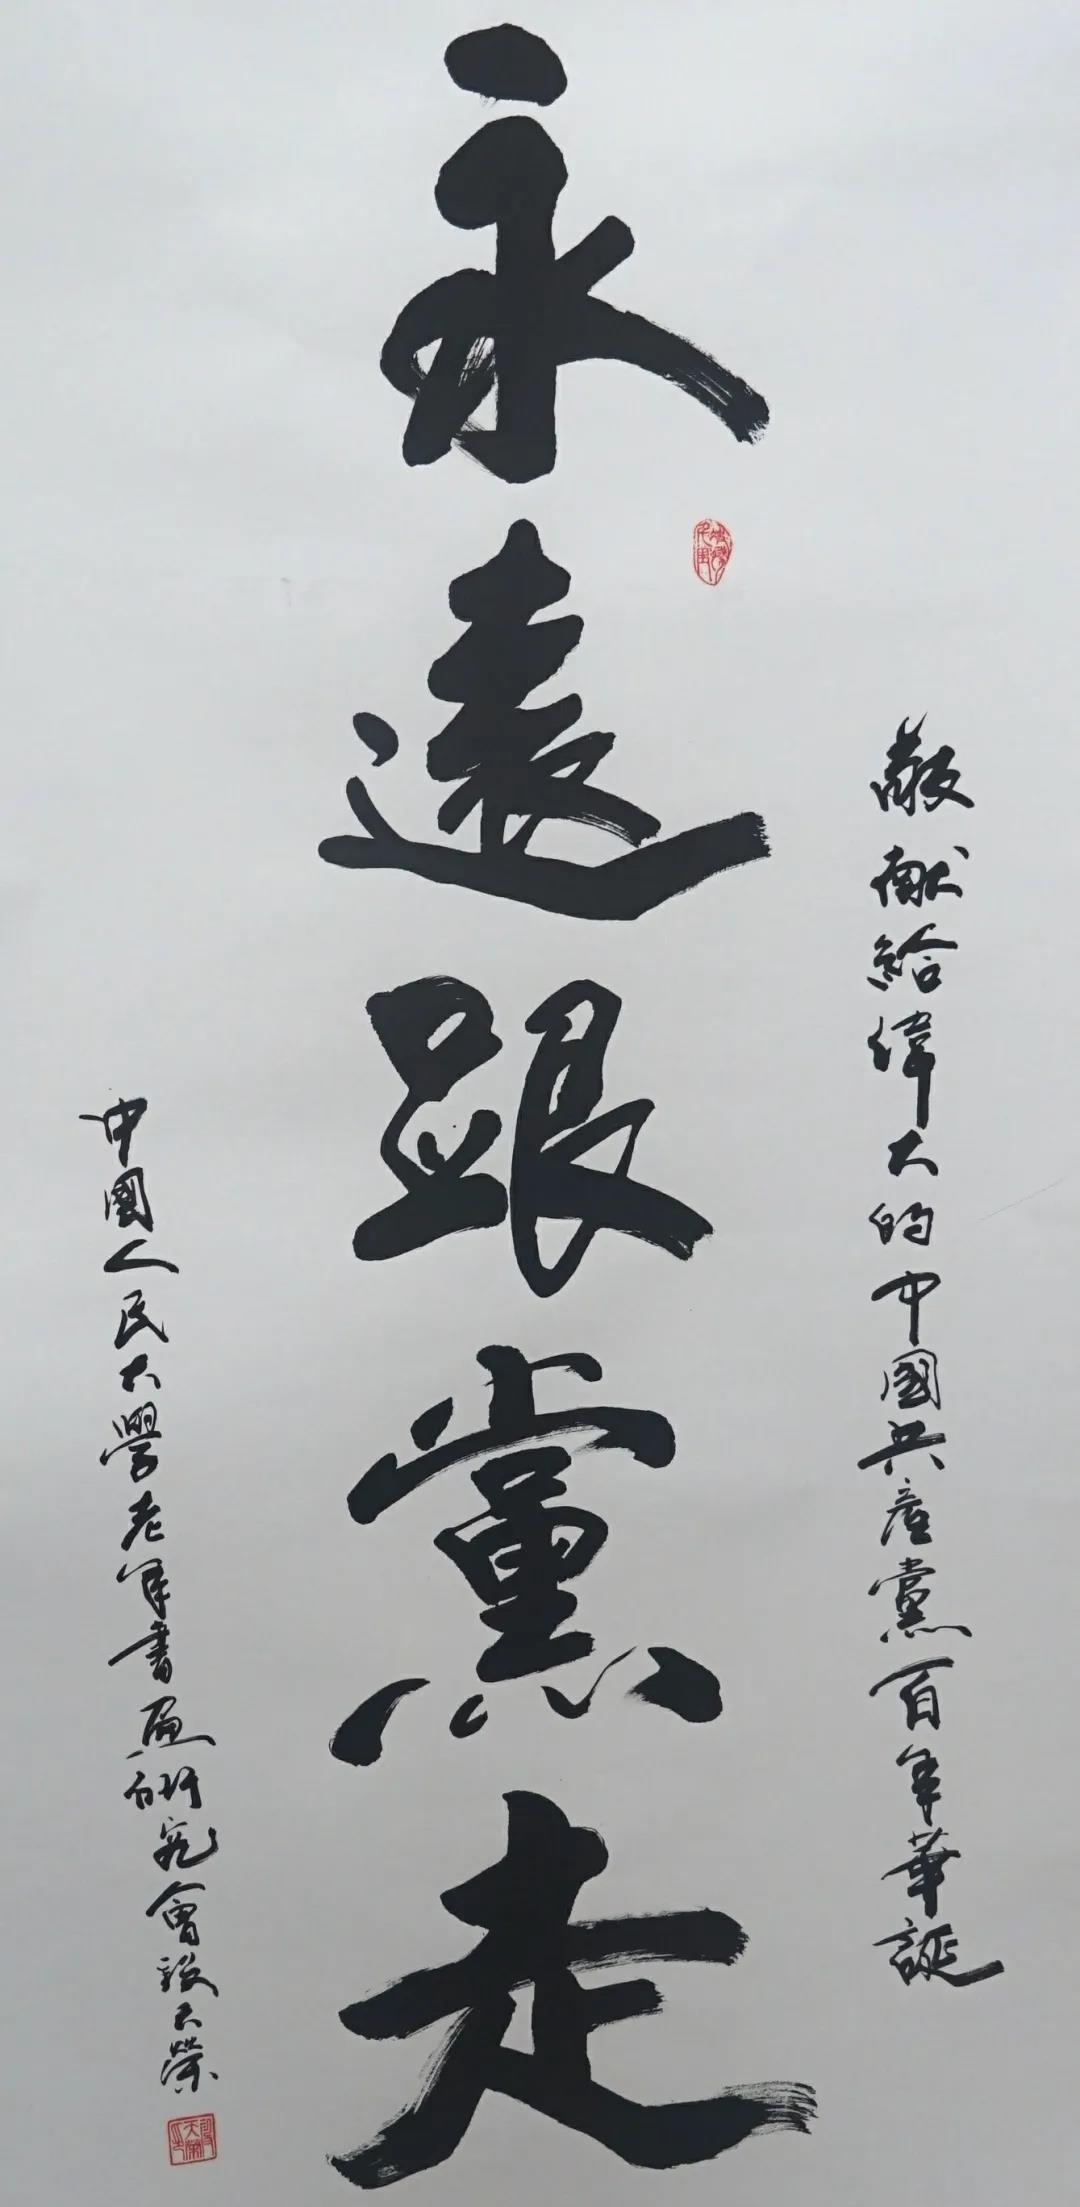 敬献給偉大的中國共產黨百年華誕
永遠跟黨走
中國人民大學老年書画研究會段天榮